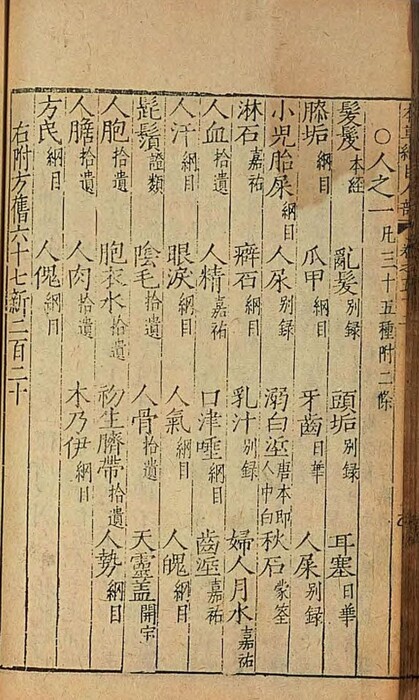 ○人之一凡三十五種附二條
髮髲本經　亂髮别録　頭垢别録　耳塞日華
膝垢綱目　爪甲綱目　牙齒日華　人屎别録
小兒胎屎綱目　人尿别録　溺白垽唐本即人中白　秋石蒙筌
淋石嘉祐　癖石綱目　乳汁别録　婦人月水嘉祐
人血拾遺　人精嘉祐　口津唾綱目　齒垽嘉祐
人汗綱目　眼淚綱目　人氣綱目　人魄綱目
髭鬚證類　陰毛拾遺　人骨拾遺　天靈蓋開宝
人胞拾遺　胞衣水拾遺　初生臍帶拾遺　人勢綱目
人膽拾遺　人肉拾遺　木乃伊綱目
方民綱目　人傀綱目
右附方舊六十七新二百二十